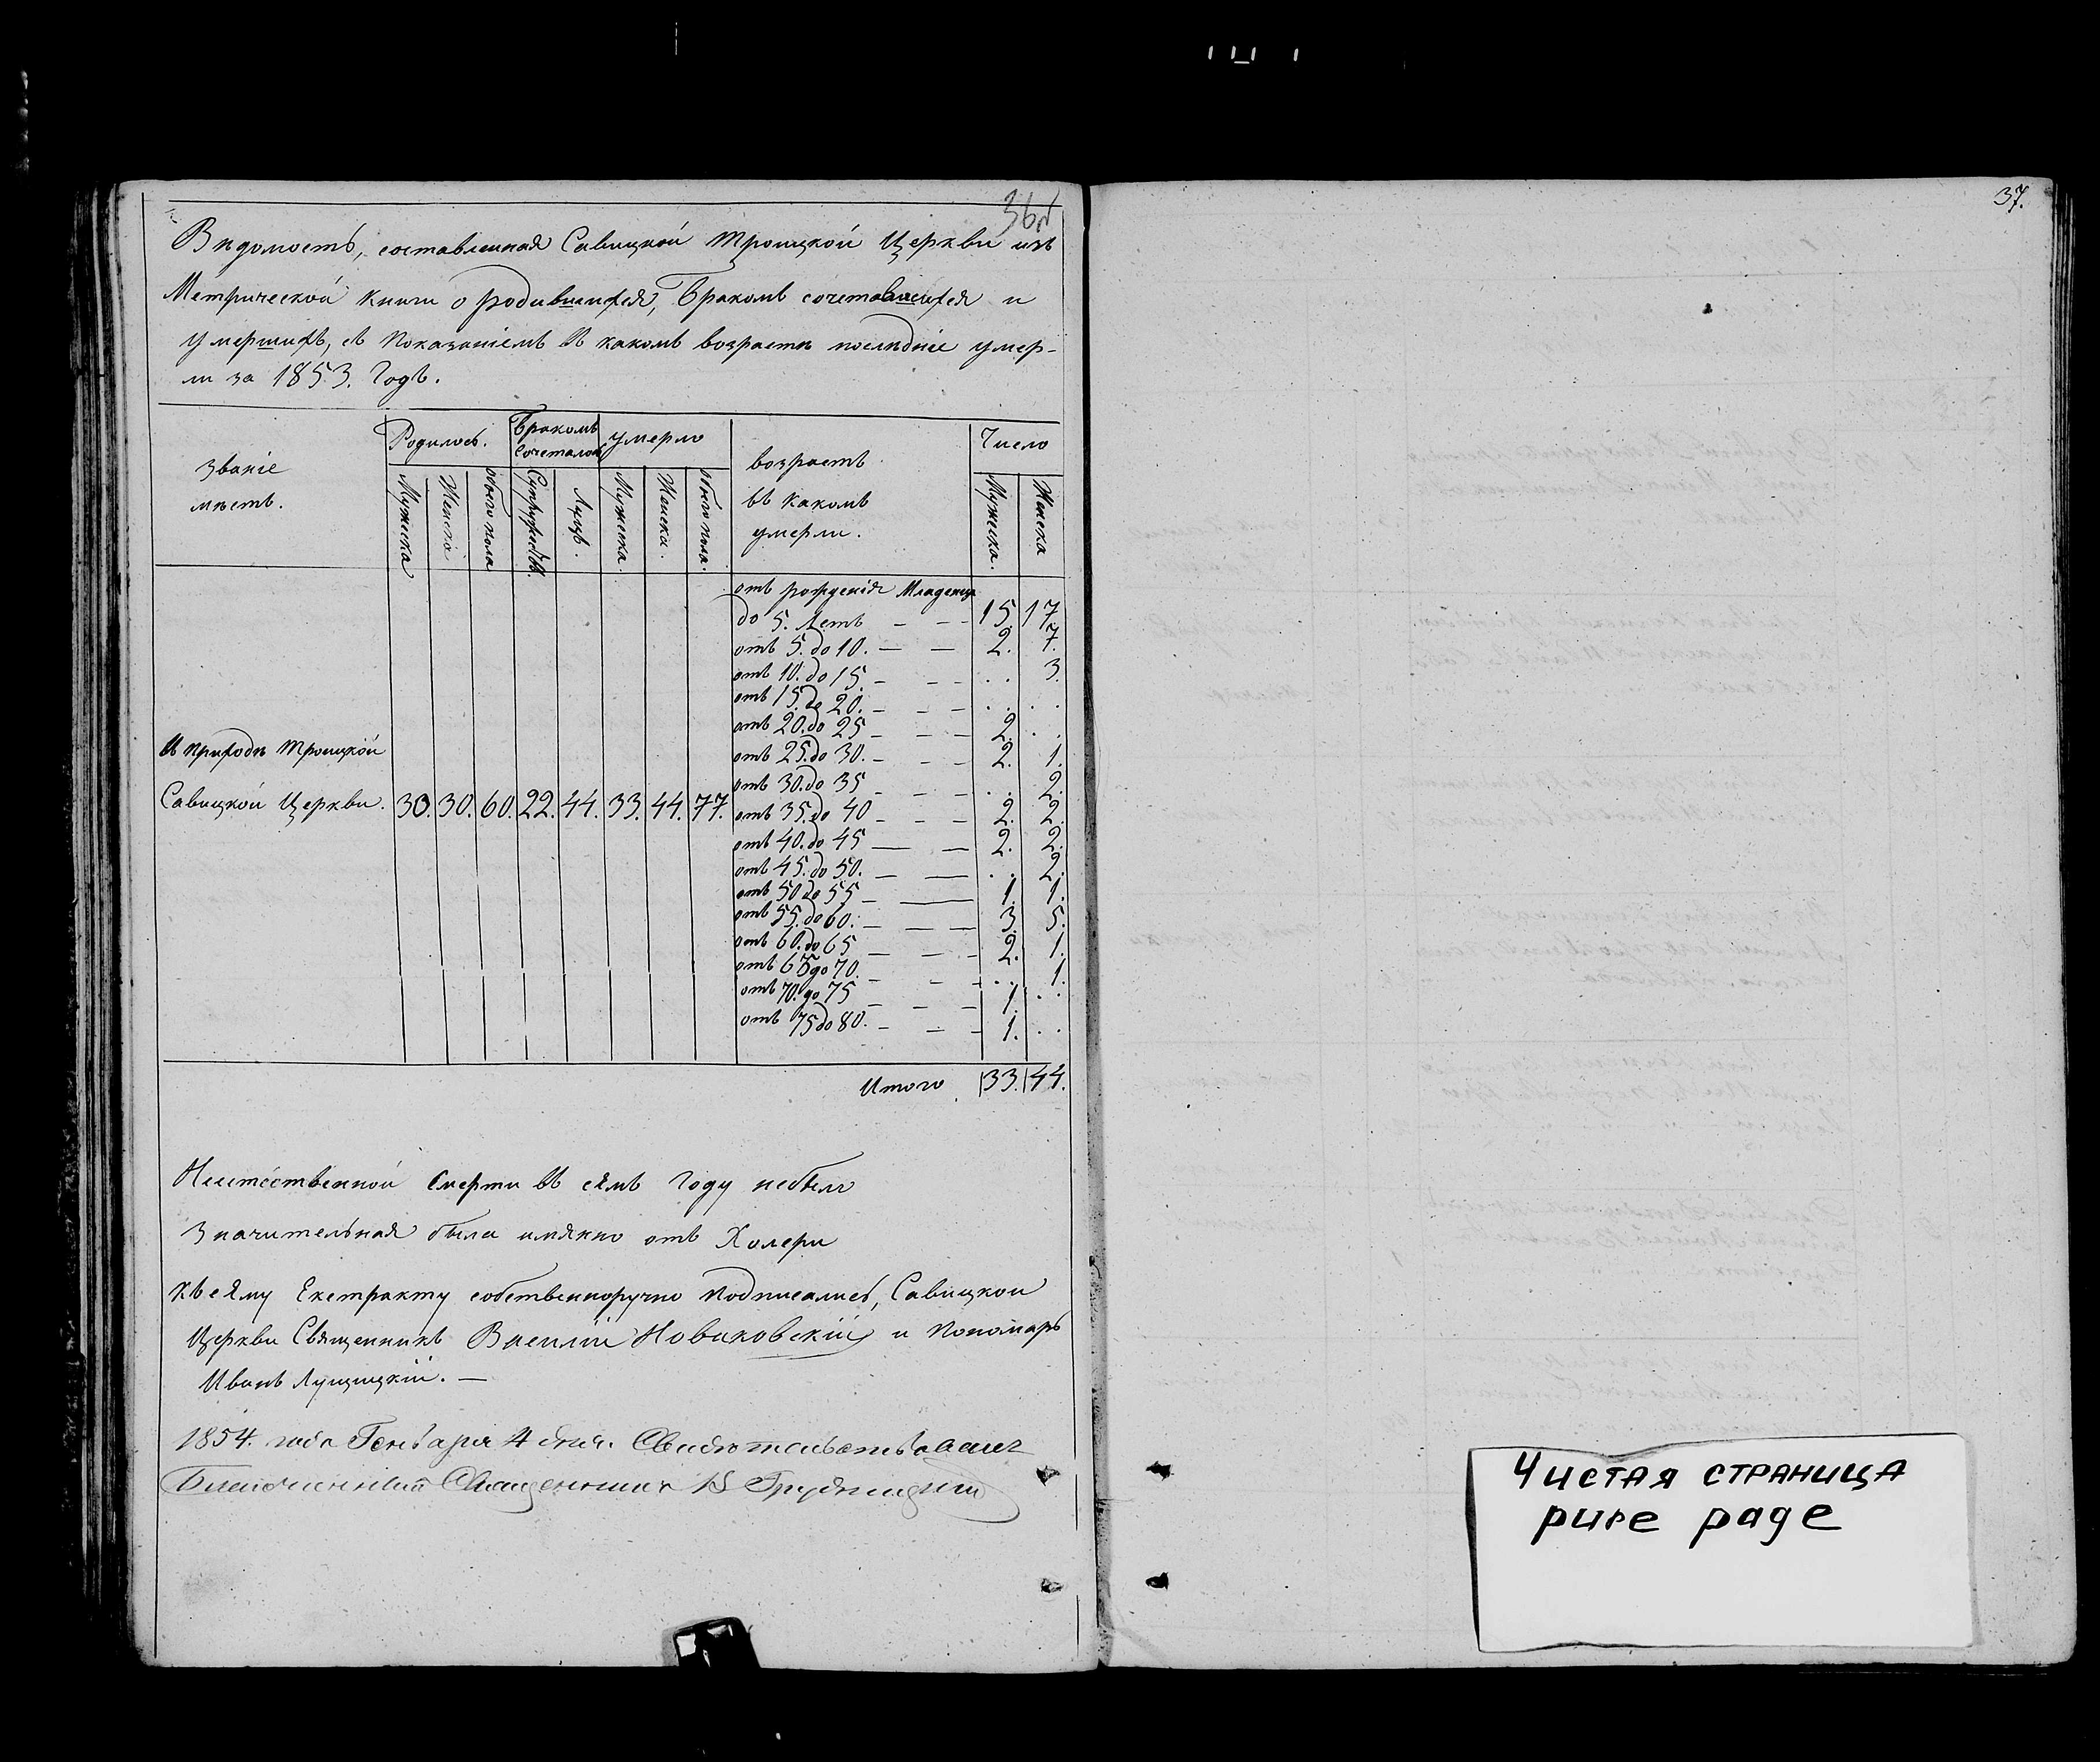 36
Вѣдомость, составленная Савицкой Троицкой Церкви изъ
Метрической книги о родившихся, бракомъ сочетавшихся и
умершихъ, съ показаніемъ въ какомъ возрастѣ послѣдніе умер-
ли за 1853. Годъ.
Званіе мѣстъ. Родилось. Бракомъ Сочеталось умерло возрастъ въ какомъ умерли. Число
Мужеска Женска обоего пола Супружествъ. Лицъ. Мужеска. Женска. обоего пола. Мужеска. Женска
отъ рожденія Младенц
до 5. Летъ — — 15. 17
отъ 5. до 10. — — 2. 7.
отъ 10. до 15. — — . . 3.
отъ 15. до 20. — — . . . .
отъ 20. до 25 — — 2. . .
отъ 25. до 30. — — 2. 1.
отъ 30. до 35 — — . . 2.
отъ 35. до 40 — — 2. 2.
отъ 40. до 45 — — 2. 2.
отъ 45. до 50. — — . . 2.
отъ 50 до 55 — — 1. 1.
отъ 55. до 60. — — 3. 5.
отъ 60. до 65 — — 2. 1.
отъ 65 до 70. — — . . 1.
отъ 70. до 75 — — 1. . .
отъ 75 до 80. — — 1. . .
въ приходѣ Троицкой
Савицкой Церкви. 30. 30. 60. 22. 44. 33. 44. 77.
Итого 33. 44.
Неестественной Смерти въ семъ году небыло
Значительная была имянно отъ Холеры
къ сему Екстракту собственноручно подписались, Савицкой
Церкви Священникъ Василій Новаковскій и Пономарь
Иванъ Лущицкій. —
1854. года Генваря 4 дня. Свидѣтельствовалъ
Благочинный Священникъ
37.
Чистая страница
pure page